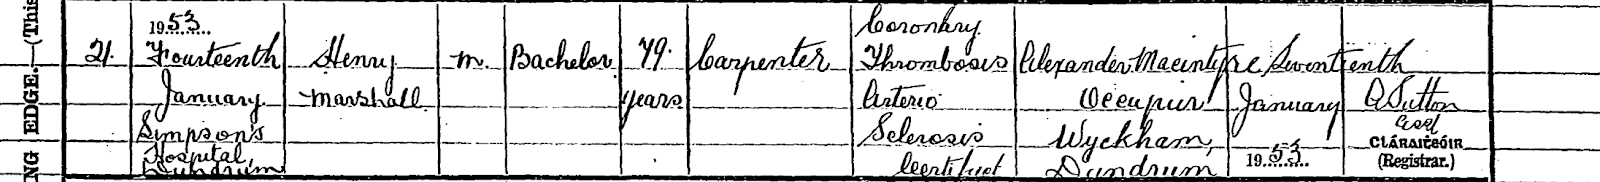 NG EDGE.—(This
21.
1953
Fourteenth
January
Simpson's
Hospital,
Dundrum
Henry
Marshall
m.
Bachelor
79.
years
Carpenter
Coronary
Thrombosis
Arterio
Sclerosis
Certified
Alexander Macintyre
Occupier
Wyckham,
Dundrum
Seventeenth
January
1953
Sutton
CLÁRAITHEÓIR
(Registrar.)